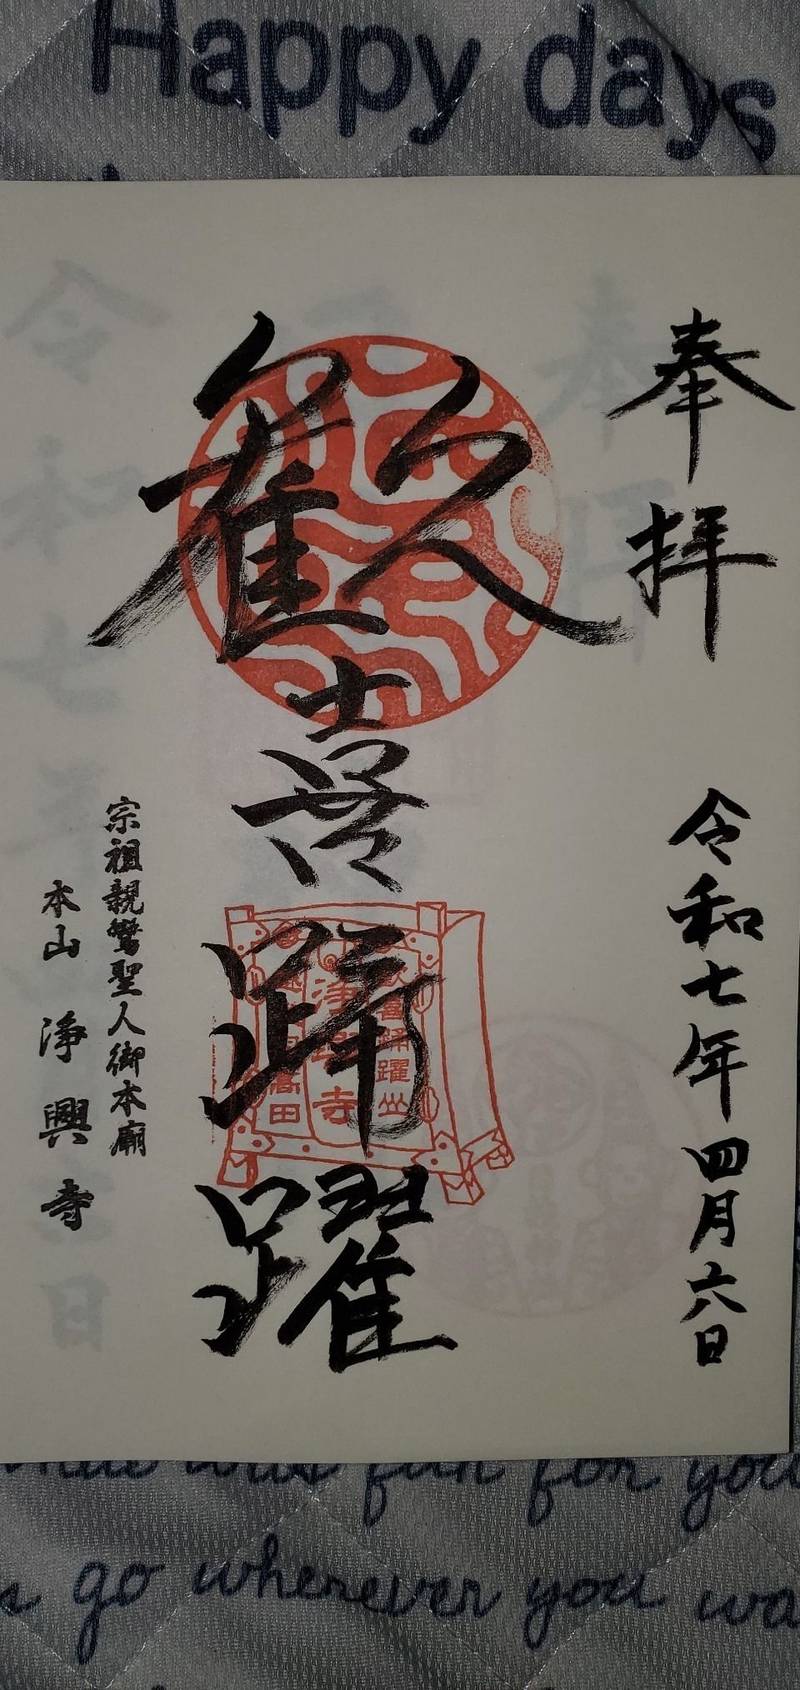 Happy days
奉拝
令和七年四月六日
歓喜踊躍
歓喜踊躍山
浄興寺
宗祖親鸞聖人御本廟
本山 浄興寺
was fun for you
go wherever you